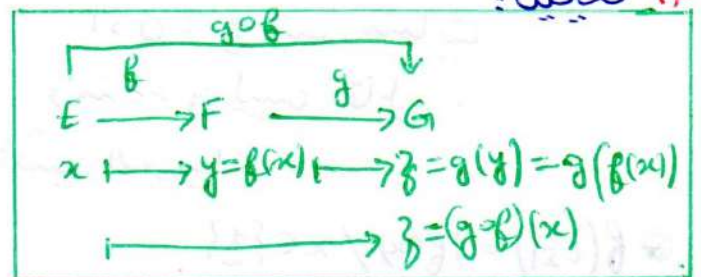 g∘f
f g
E ⟶ F ⟶ G
x ⟼ y=f(x) ⟼ z=g(y)=g(f(x))
⟼ z=(g∘f)(x)